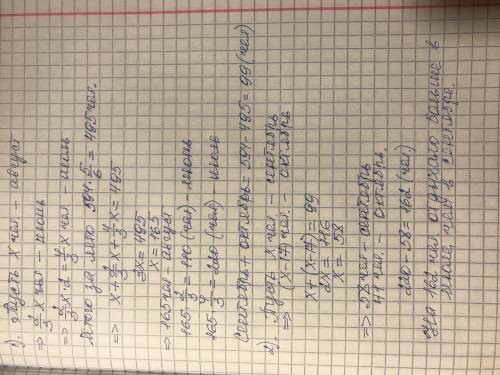 1). Пусть x чел. - август
⇒ 2/3 x чел - июнь
⇒ 2/3 x · 2 = 4/3 x чел - июль
Итого за лето 594 · 5/6 = 495 чел.
⇒ x + 2/3 x + 4/3 x = 495
3x = 495
x = 165
⇒ 165 чел - август
165 · 2/3 = 110 (чел) - июнь
165 · 4/3 = 220 (чел) - июль
Сентябрь + октябрь = 594 - 495 = 99 (чел)
2). Пусть x чел. - сентябрь
⇒ (x-17) чел. - октябрь
x + (x-17) = 99
2x = 116
x = 58
⇒ 58 чел - сентябрь
41 чел. - октябрь.
220 - 58 = 162 (чел)
На 162 чел отдыхало больше в
июле, чем в сентябре.